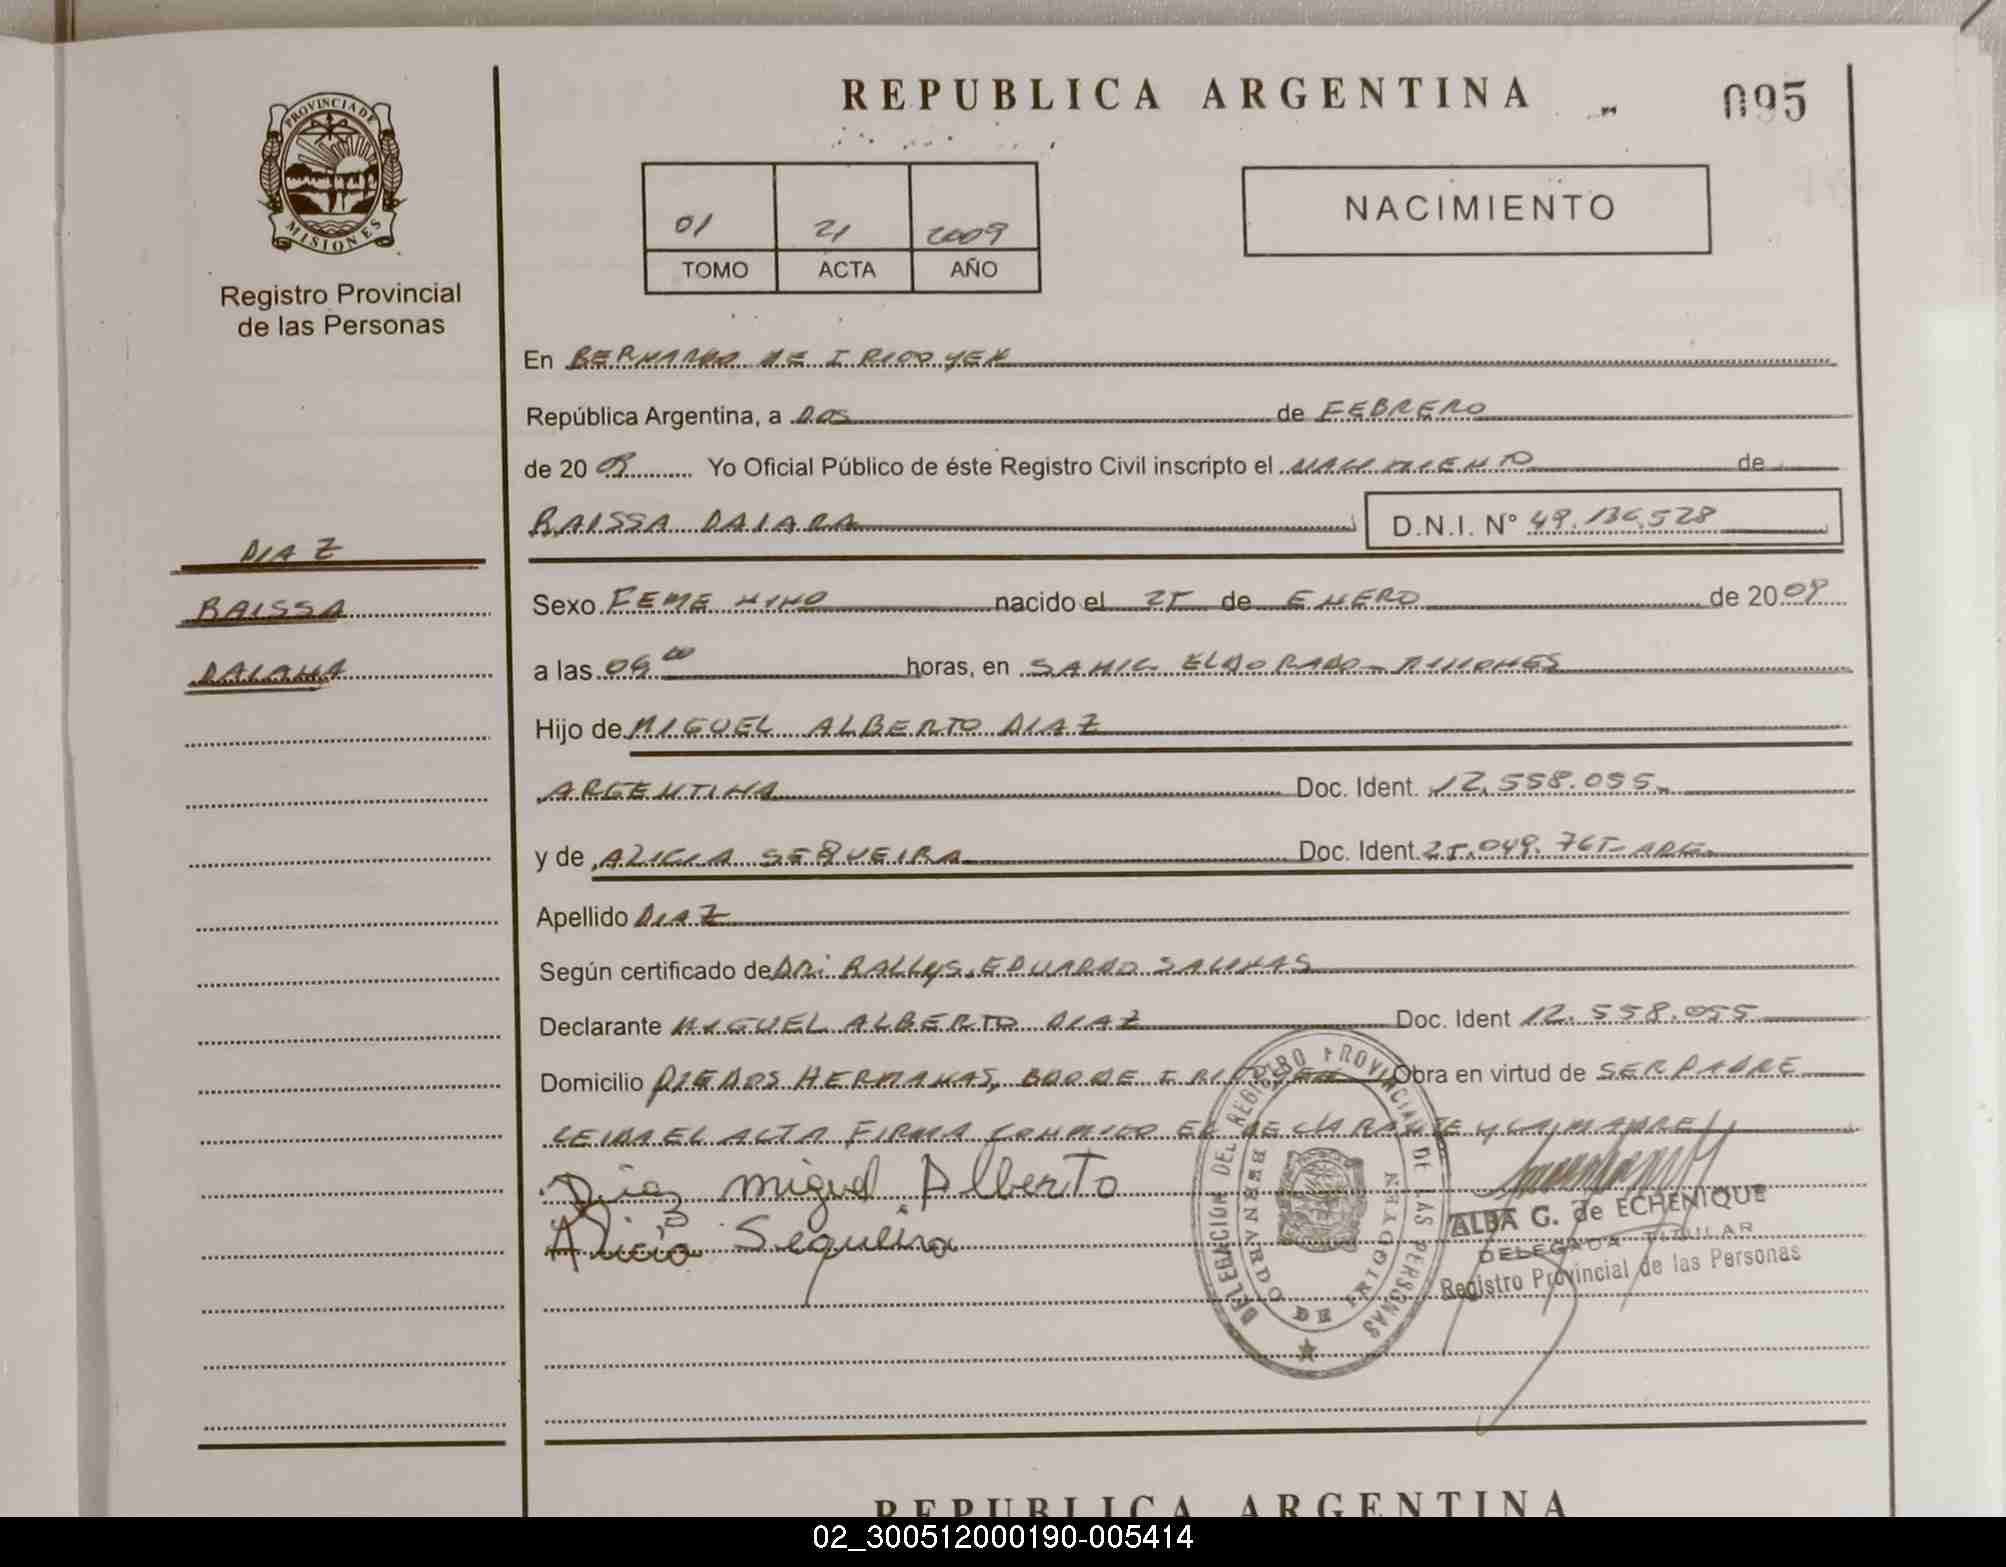 REPUBLICA ARGENTINA
095
PROVINCIA DE
MISIONES
Registro Provincial
de las Personas
01 21 2009
TOMO ACTA AÑO
NACIMIENTO
En BERNARDO DE IRIGOYEN
República Argentina, a DOS de FEBRERO
de 20 09 Yo Oficial Público de éste Registro Civil inscripto el NACIMIENTO de
RAISSA DAIARA D.N.I. N° 49.136.528
DIAZ
RAISSA
DAIARA
Sexo FEMENINO nacido el 25 de ENERO de 2009
a las 06 00 horas, en SAMIC ELDORADO - MISIONES
Hijo de MIGUEL ALBERTO DIAZ
ARGENTINA Doc. Ident. 12.558.055
y de ALICIA SEQUEIRA Doc. Ident. 25.049.765 - ARG.
Apellido DIAZ
Según certificado de DR: RALLYS EDUARDO SALINAS
Declarante MIGUEL ALBERTO DIAZ Doc. Ident 12.558.055
Domicilio HERMANAS, BDO DE IRIGOYEN Obra en virtud de SER PADRE
LEIDA EL ACTA FIRMA CONMIGO EL DECLARANTE Y LA MADRE
Diaz miguel Alberto
Alicia Sequeira
DELEGACION DEL REGISTRO PROVINCIAL DE LAS PERSONAS
BERNARDO DE IRIGOYEN
ALBA G. de ECHENIQUE
DELEGADA TITULAR
Registro Provincial de las Personas
REPUBLICA ARGENTINA
02_300512000190-005414